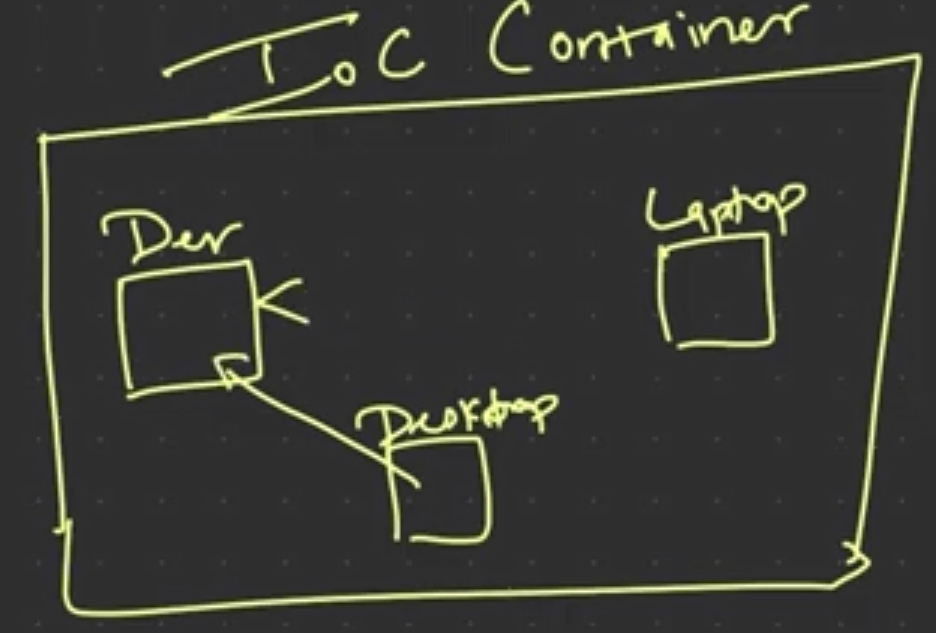 IoC Container
Dev
Laptop
Desktop